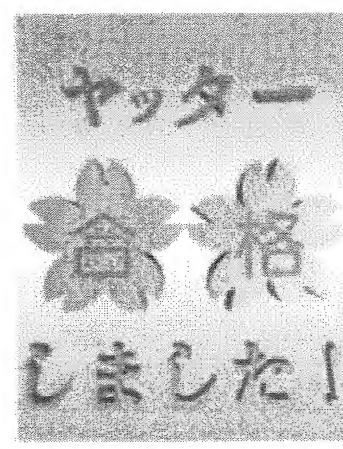 ヤッター
合格
しました!